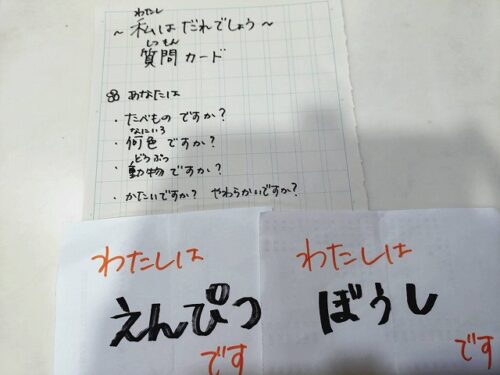 わたし
～ 私は だれでしょう ～
しつもん
質問 カード
あなたは
・たべもの ですか？
なにいろ
・何色 ですか？
どうぶつ
・動物 ですか？
・かたいですか？ やわらかいですか？
わたしは
えんぴつ
です
わたしは
ぼうし
です